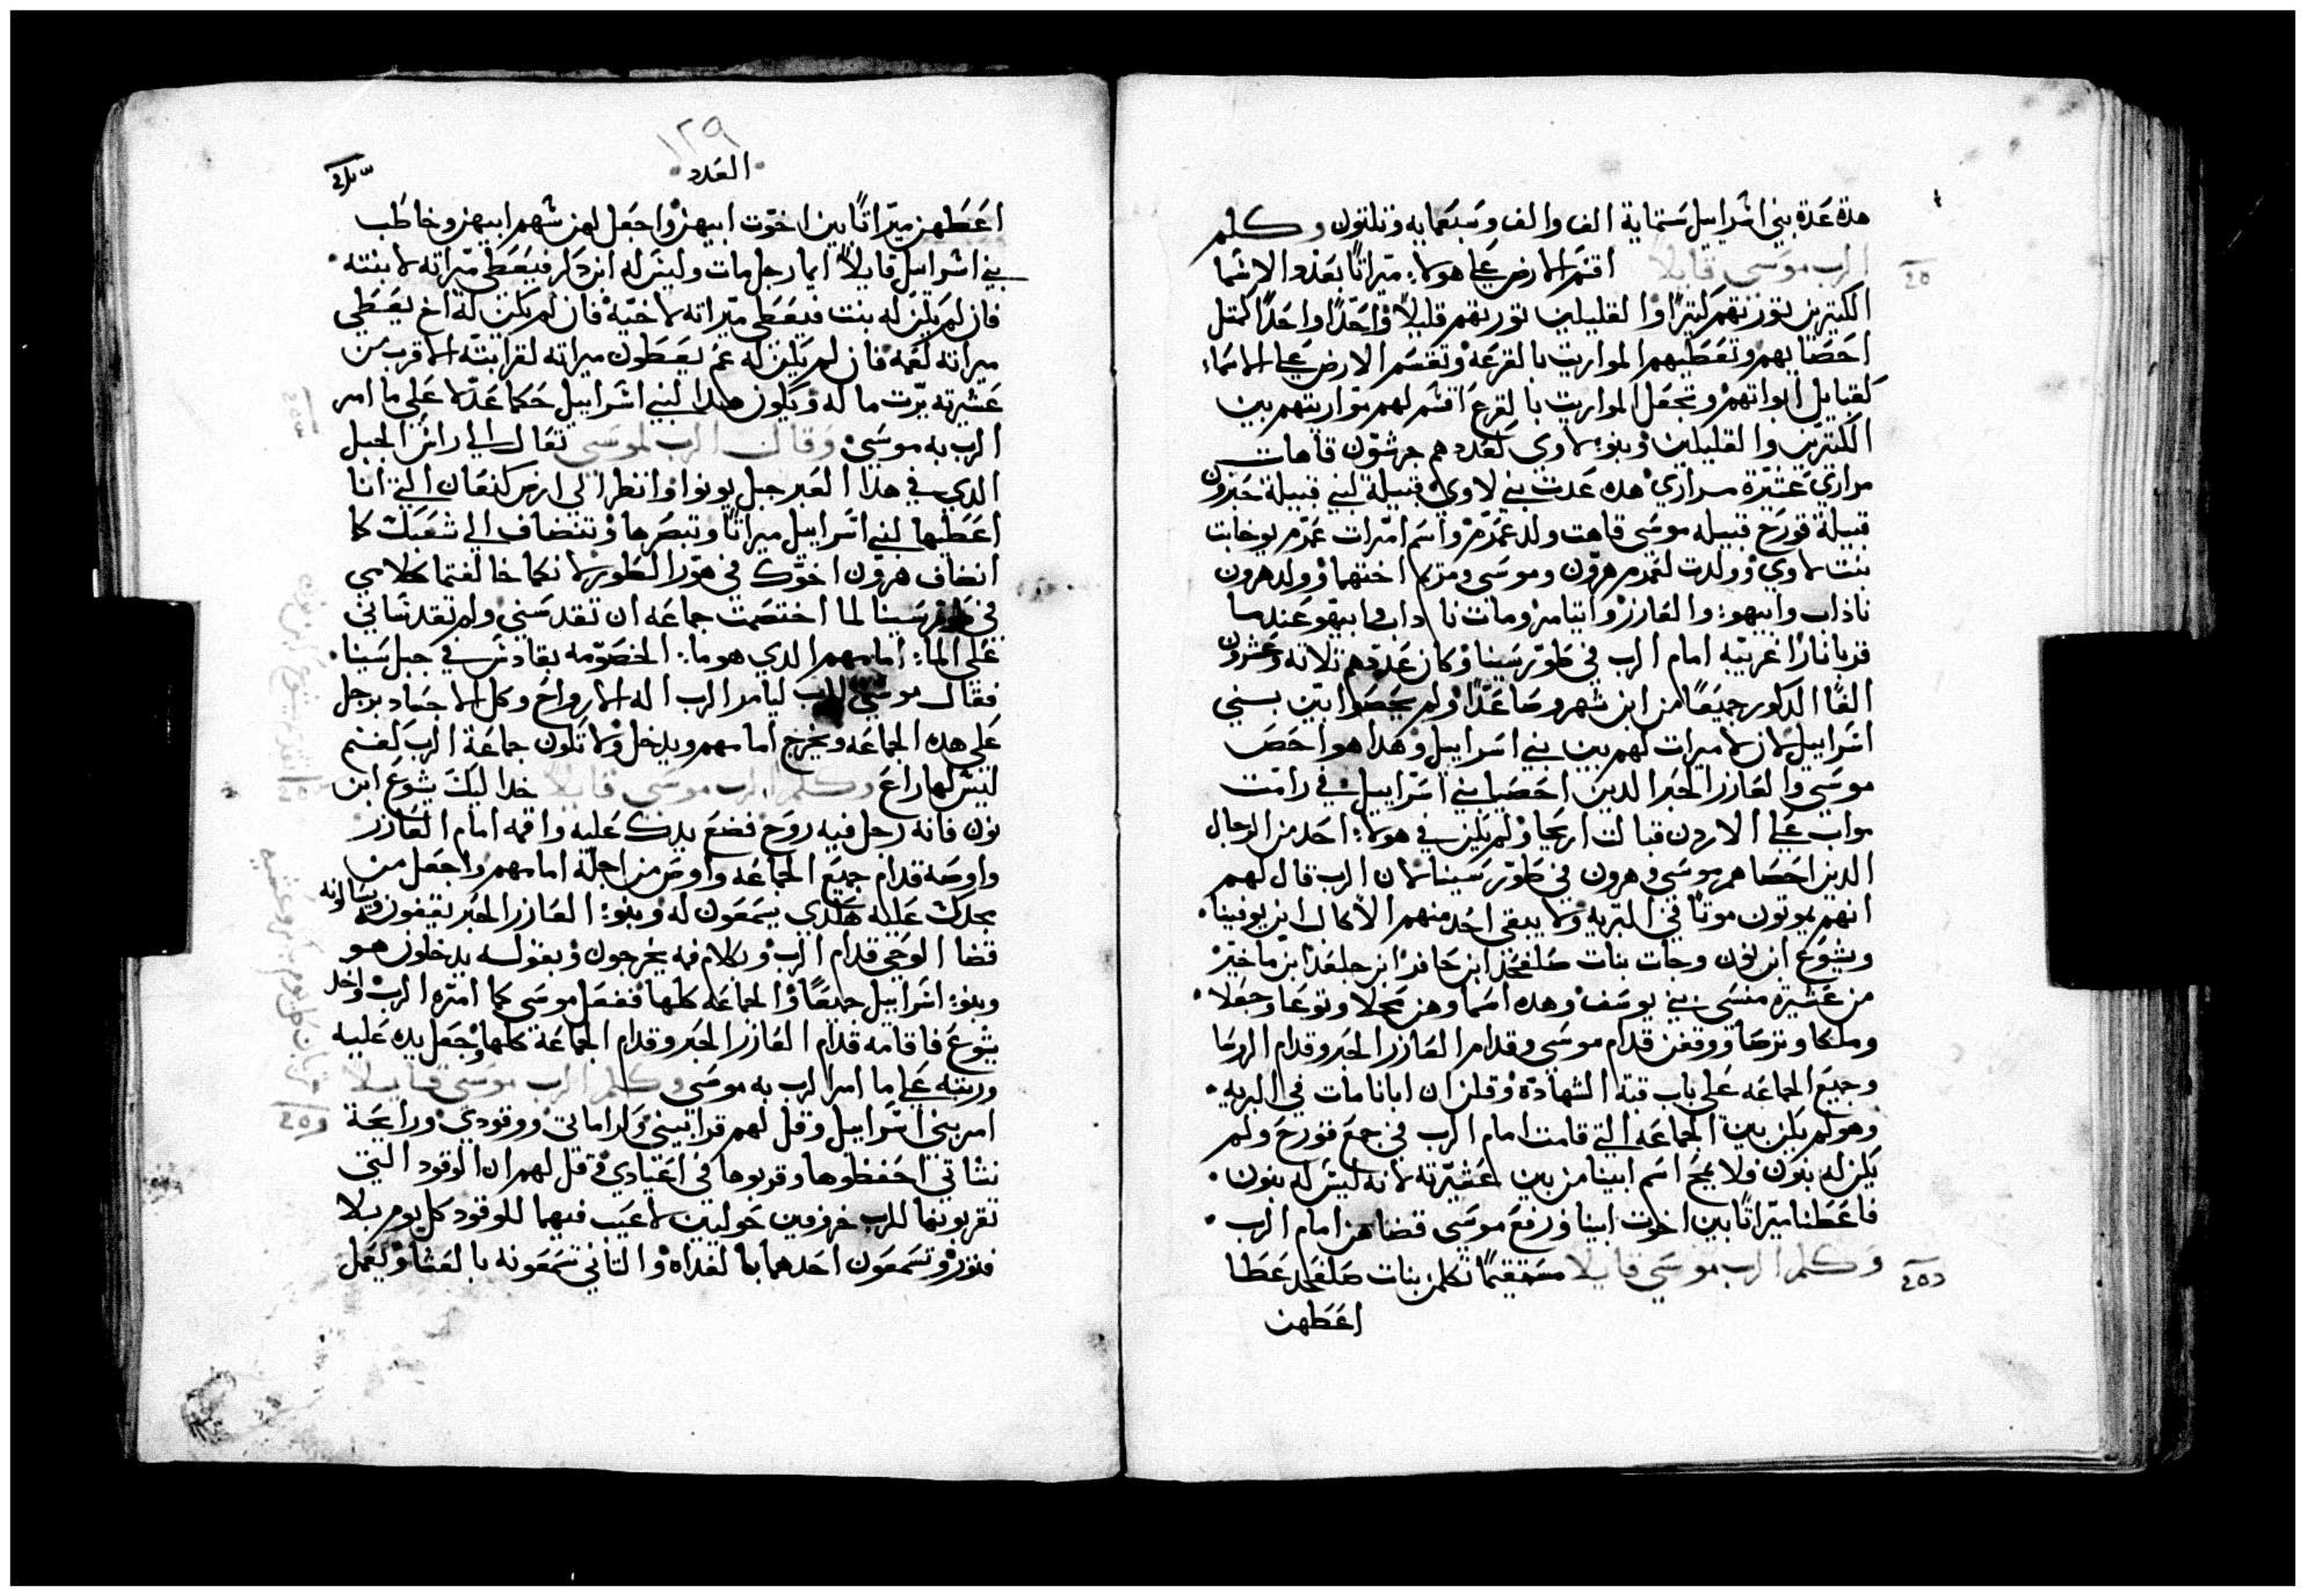 هذه عدة بني اسراييل ستماية الف والف وسبعمايه وتلتون وكلم
الرب موسى قايلا اقسم الارض على هولاء ميراتا بعدد الاسما
الكتيرين تورتهم كتيرا والقليلين تورتهم قليلا واحدا واحدا كمتل
احصايهم وتعطيهم المواريت بالقرعه وتقسم الارض على الاسماء
كقبايل ابواتهم وتجعل المواريت بالقرع اقسم لهم مواريتهم بين
الكتيرين والقليلين وبنو لاوى كعددهم جرشون قاهات
مراري عشيرة مراري هده عدت بني لاوى قبيلة لبني قبيلة حبرون
قبيلة قورح قبيله موسى قاهت ولد عمرم واسم امرات عمرم يوخابت
بنت لاوي وولدت لعمرم هرون وموسى ومريم اختهما وولد هرون
ناداب وابيهو والعازر وايتامر ومات ناداب وابيهو عندما
قربا نارا غريبه امام الرب في طور سينا وكان عددهم تلاته وعشرون
الفا الدكور جميعا من ابن شهر وصاعدا ولم يحصوا بين بني
اسراييل لان لا ميرات لهم بين بني اسراييل وهدا هو احصى
موسى والعازر الحبر الدين احصيا بني اسراييل في رامت
مواب على الاردن قبالت اريحا ولم يكن في هولاء احد من الرجال
الدين احصاهم موسى وهرون في طور سينا لان الرب قال لهم
انهم يموتون موتا في البريه ولا يبقى احد منهم الا كالب ابن يوفينا
ويشوع ابن نون وجات بنات صلفحد ابن حافر ابن جلعد ابن ماخير
من عشيرة منسى بني يوسف وهده اسماوهن محلا ونوعا وحجلا
وملكا وترصا ووقفن قدام موسى وقدام العازر الحبر وقدام الروسا
وجميع الجماعه على باب قبة الشهادة وقلن ان ابانا مات في البريه
وهو لم يكن بين الجماعه التي قامت امام الرب في جمع قورح ولم
يكن له بنون فلا يمح اسم ابينا من بين عشيرته لانه ليس له بنون
فاعطنا ميراتا بين اخوت ابينا فرفع موسى قضاهن امام الرب
وكلم الرب موسى قايلا مستقيما تكلمن بنات صلفحد عطا
اعطهن
١٢٩
العدد
اعطهن ميراتا بين اخوت ابيهن واجعل لهن سهم ابيهن وخاطب
بني اسراييل قايلا ايما رجل مات وليس له ابن دكر فيعطى ميراته لابنته
فان لم يكن له بنت فيعطى ميراته لاخيه فان لم يكن له اخ يعطي
ميراته لعمه فان لم يكن له عم يعطون ميراته لقرابته الاقرب من
عشيرته يرت ما له ويكون هدا لبني اسراييل حكما عدلا على ما امر
الرب به موسى وقال الرب لموسى تعال الي راس الجبل
الدي في هدا العبر جبل يونوا وانظر الى ارض كنعان التي انا
اعطيها لبني اسراييل ميراتا وتبصرها وتنضاف الي شعبك كا
انضاف هرون اخوك في هور الطور لانكما خالفتما كلامي
في طور سينا لما اختصمت جماعه ان تقدسني ولم تقدساني
على الماء امامهم الدي هو ماء الخصومه بقادش في جبل سينا
فقال موسى للرب ليامر الرب اله الارواح وكل الاجساد برجل
على هده الجماعه ويخرج امامهم ويدخل ولا تكون جماعة الرب كغنم
ليس لها راع وكلم الرب موسى قايلا خد اليك يشوع ابن
نون فانه رجل فيه روح فضع يدك عليه واقمه امام العازر
واوصه قدام جميع الجماعه واوص من اجله امامهم واجعل من
مجدك عليه لكي يسمعون له وبنو العازر الحبر يقيفون ويسالونه
قضا الوحي قدام الرب وبكلام فمه يخرجون وبقوله يدخلون هو
وبنو اسراييل جميعا والجماعه كلها ففعل موسى كما امره الرب واخد
يشوع فاقامه قدام العازر الحبر وقدام الجماعة كلها وجعل يده عليه
ورتبه على ما امر الرب به موسى وكلم الرب موسى قايلا
امر بني اسراييل وقل لهم قرابيني وكراماتي ووقودي ورايحة
نشاتي احفظوها وقربوها في اعيادي وقل لهم ان الوقود التي
تقربونها للرب خروفين حوليين لا عيب فيهما للوقود كل يوم بلا
فتور وتسمعون احدهما بالغداه والتاني تسمعونه بالعشا وليعمل